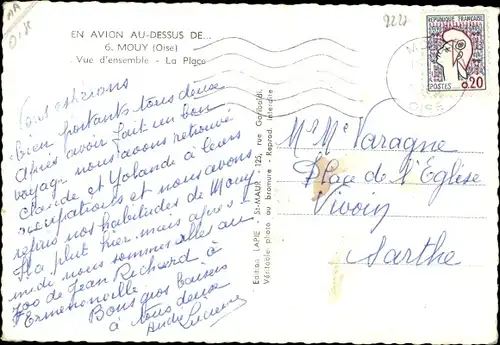 AA
0185
EN AVION AU-DESSUS DE...
6. MOUY (Oise)
Vue d'ensemble - La Place
9227
REPUBLIQUE FRANÇAISE
POSTES 0,20
OISE
Bien portants tous deux
Après avoir fait un bon
voyage nous avons retrouvé
Claude et Yolande à leurs
occupations et nous avons
repris nos habitudes de Mouy
Il a plut hier mais après-
midi nous sommes allé au
zoo de Jean Richard à
Ermenonville
Bons gros baisers
à tous deux
André Lucienne
Edition LAPIE - St-MAUR - 125, rue Garibaldi
Véritable photo au bromure - Reprod. interdite
Mr Me Varagne
Place de l'Eglise
Vivoin
Sarthe